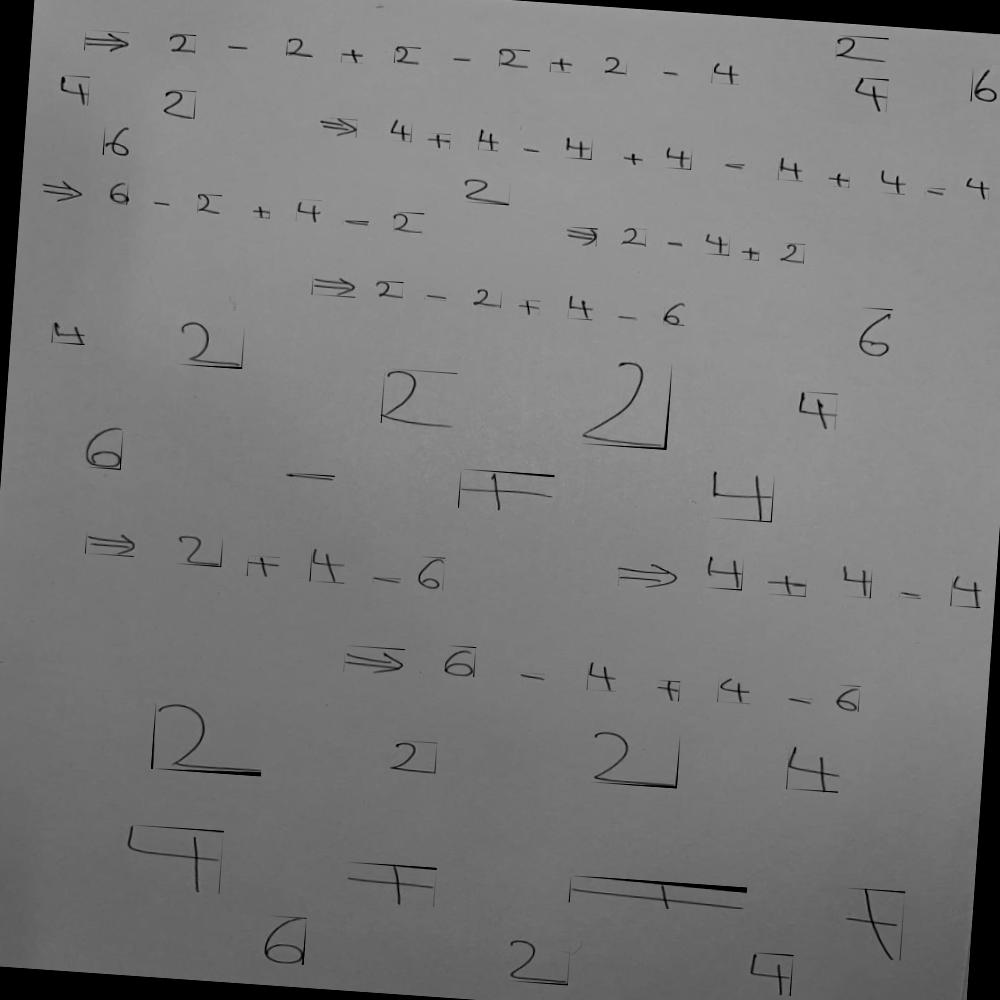 ⇒ 2 - 2 + 2 - 2 + 2 - 4 2
4 2 4 6
6 ⇒ 4 + 4 - 4 + 4 - 4 + 4 - 4
⇒ 6 - 2 + 4 - 2 2 ⇒ 2 - 4 + 2
⇒ 2 - 2 + 4 - 6 6
4 2 2 2 4
6 - + 4
⇒ 2 + 4 - 6 ⇒ 4 + 4 - 4
⇒ 6 - 4 + 4 - 6
2 2 2 4
4 + + +
6 2 4